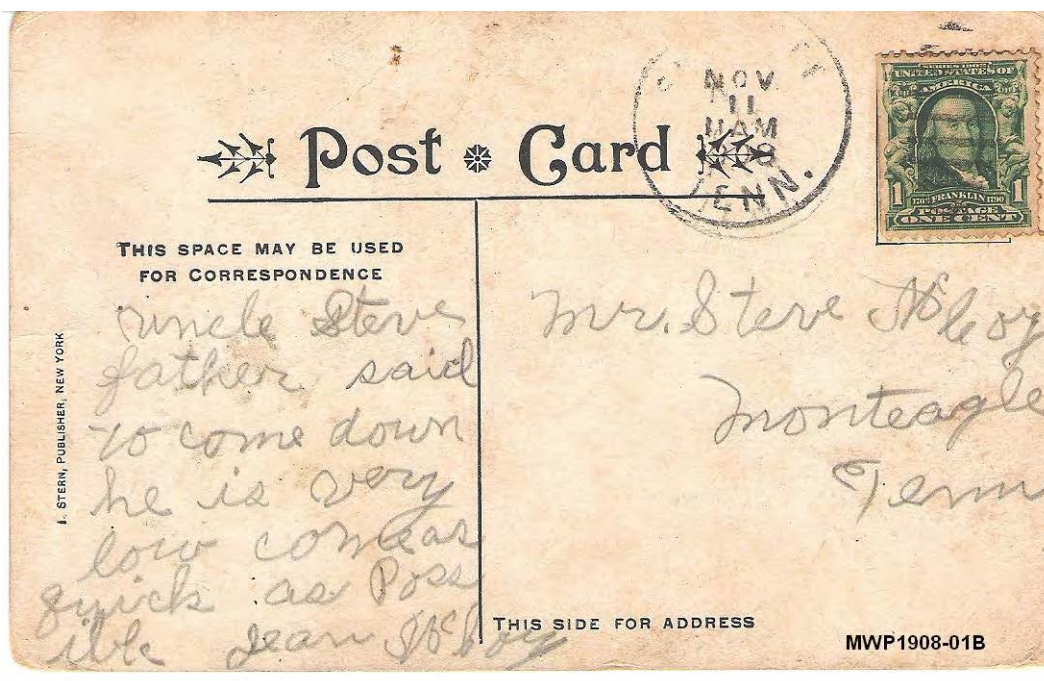 Post Card
NOV
11
11 AM
ENN.
UNITED STATES OF
AMERICA
1 FRANKLIN 1
POSTAGE
ONE CENT
THIS SPACE MAY BE USED
FOR CORRESPONDENCE
Uncle Steve
father said
to come down
he is very
low come as
quick as Poss
ible Jean McCoy
Mr. Steve McCoy
Monteagle
Tenn
I. STERN, PUBLISHER, NEW YORK
THIS SIDE FOR ADDRESS
MWP1908-01B